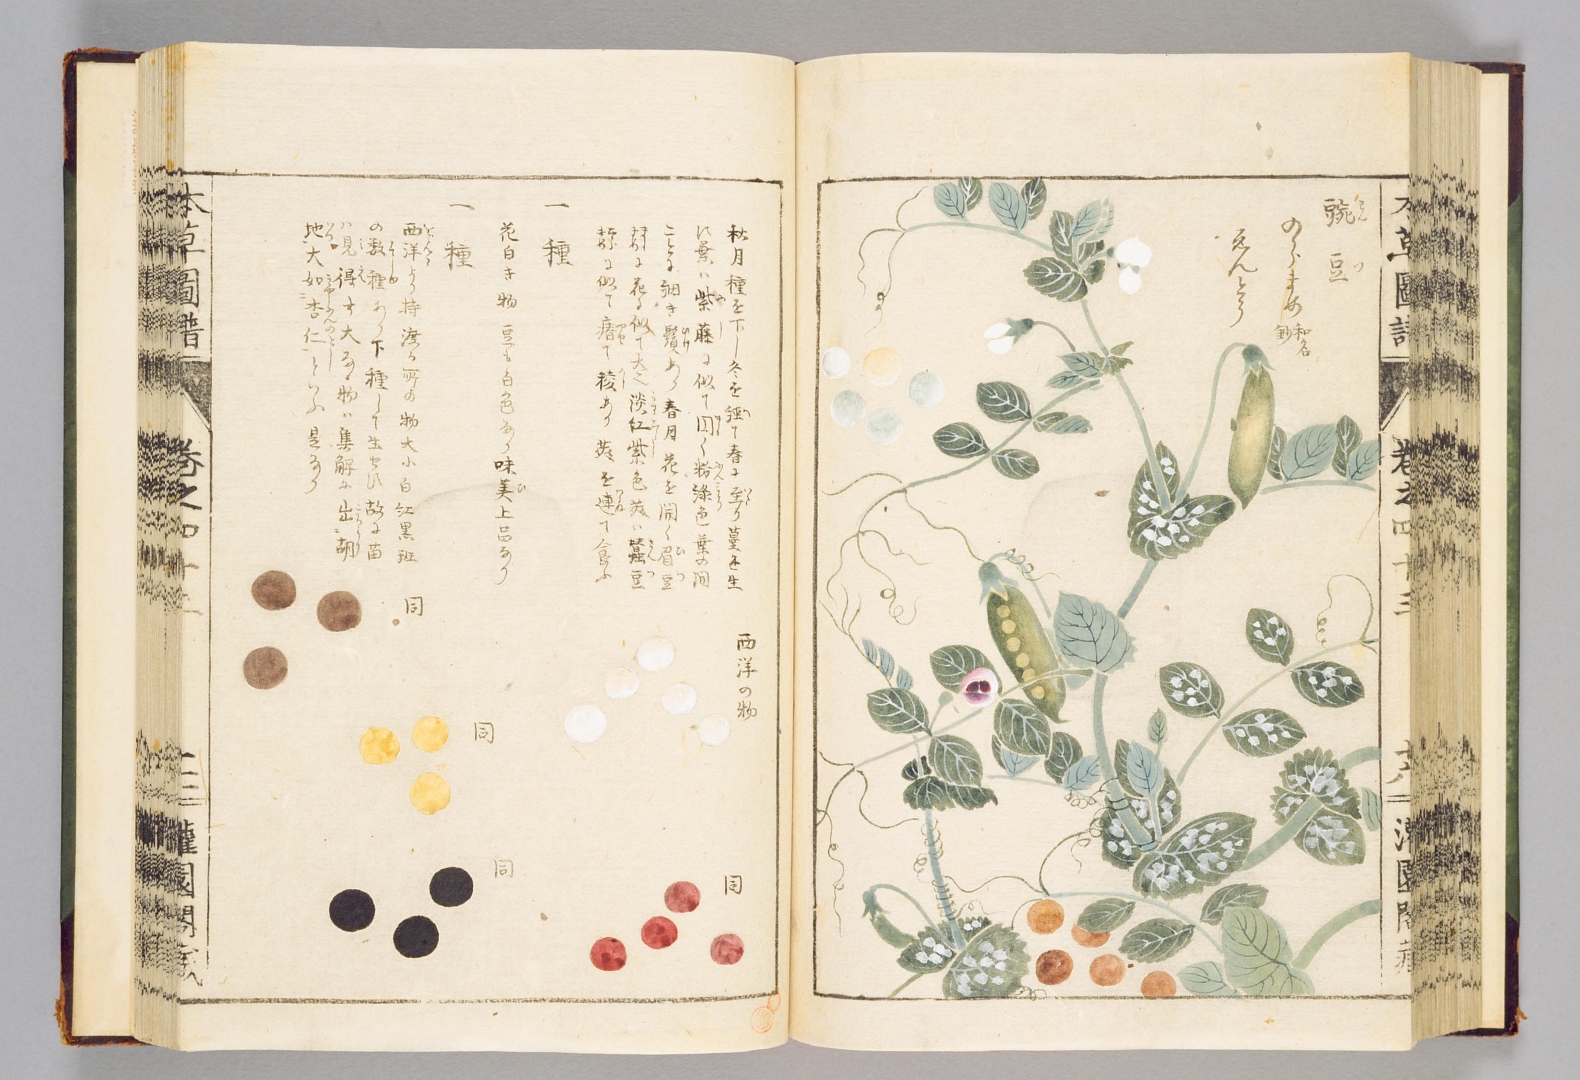 本草圖譜
卷之四十三
灌園閣藏
豌豆
のらまめ 和名鈔
ゑんどう
秋月種を下し冬を經て春に至り蔓を生
し葉は紫藤に似て円く粉緑色葉の間
ことに細き鬚あり春月花を開く眉豆
花に似て大く淡紅紫色莢は蠶豆
に似て瘠て稜あり莢を連て食ふ
西洋の物
同
一種
花白き物豆も白色なり味美上品なり
一種
西洋より持渡る所の物大小白紅黒斑
の数種あり下種して生せす故に苗
は見得す大なる物は集解に出胡
地大如杏仁といふ是なり
同
同
同
本草圖譜
卷之四十三
灌園閣藏